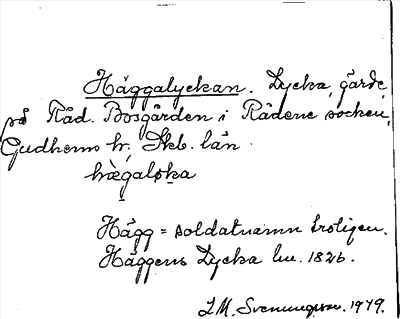 Häggalyckan. Lycka, gärde,
på Råd. Bosgården i Rådene socken,
Gudhems hr, Skb. län.
hægaløka
Hägg = soldatnamn troligen.
Häggens Lycka hu. 1826.
I.M. Svenungson. 1979.